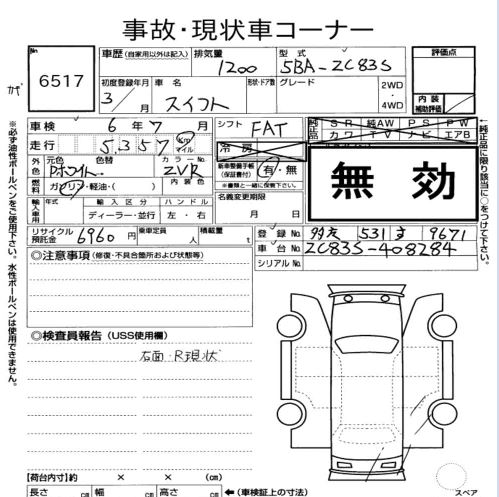 事故・現状車コーナー
No 6517
車歴 (自家用以外は記入) 排気量 1200 型式 5BA-ZC83S 評価点
初度登録年月 3/ 車名 スイフト 形状・ドア数 グレード 2WD ・ 4WD 内装 補助評価
車検 6年7月 シフト FAT 純正品 SR 純AW PS PW
走行 5357 Km マイル 冷房 カワ TV ナビ エアB
外色 元色 Pホワイト 色替 カラーNo. ZVR 新車整備手帳(保証書付) 有・無
燃料 ガソリン・軽油・( ) 内装色 ※書類と一緒に保管下さい。
無効
輸入車用 年式 輸入区分 ディーラー・並行 ハンドル 左・右 名義変更期限 月 日
リサイクル預託金 6960円 乗車定員 人 積載量 t
登録No. 531 9671
車台No. ZC83S-408284
シリアルNo.
◎注意事項 (修復・不具合箇所および状態等)
◎検査員報告 (USS使用欄)
右面・R現状
【荷台内寸】 × × (cm)
長さ cm 幅 cm 高さ cm ←(車検証上の寸法)
スペア
※必ず油性ボールペンをご使用下さい。水性ボールペンは使用不可。
純正品に限り該当に○をつけて下さい。